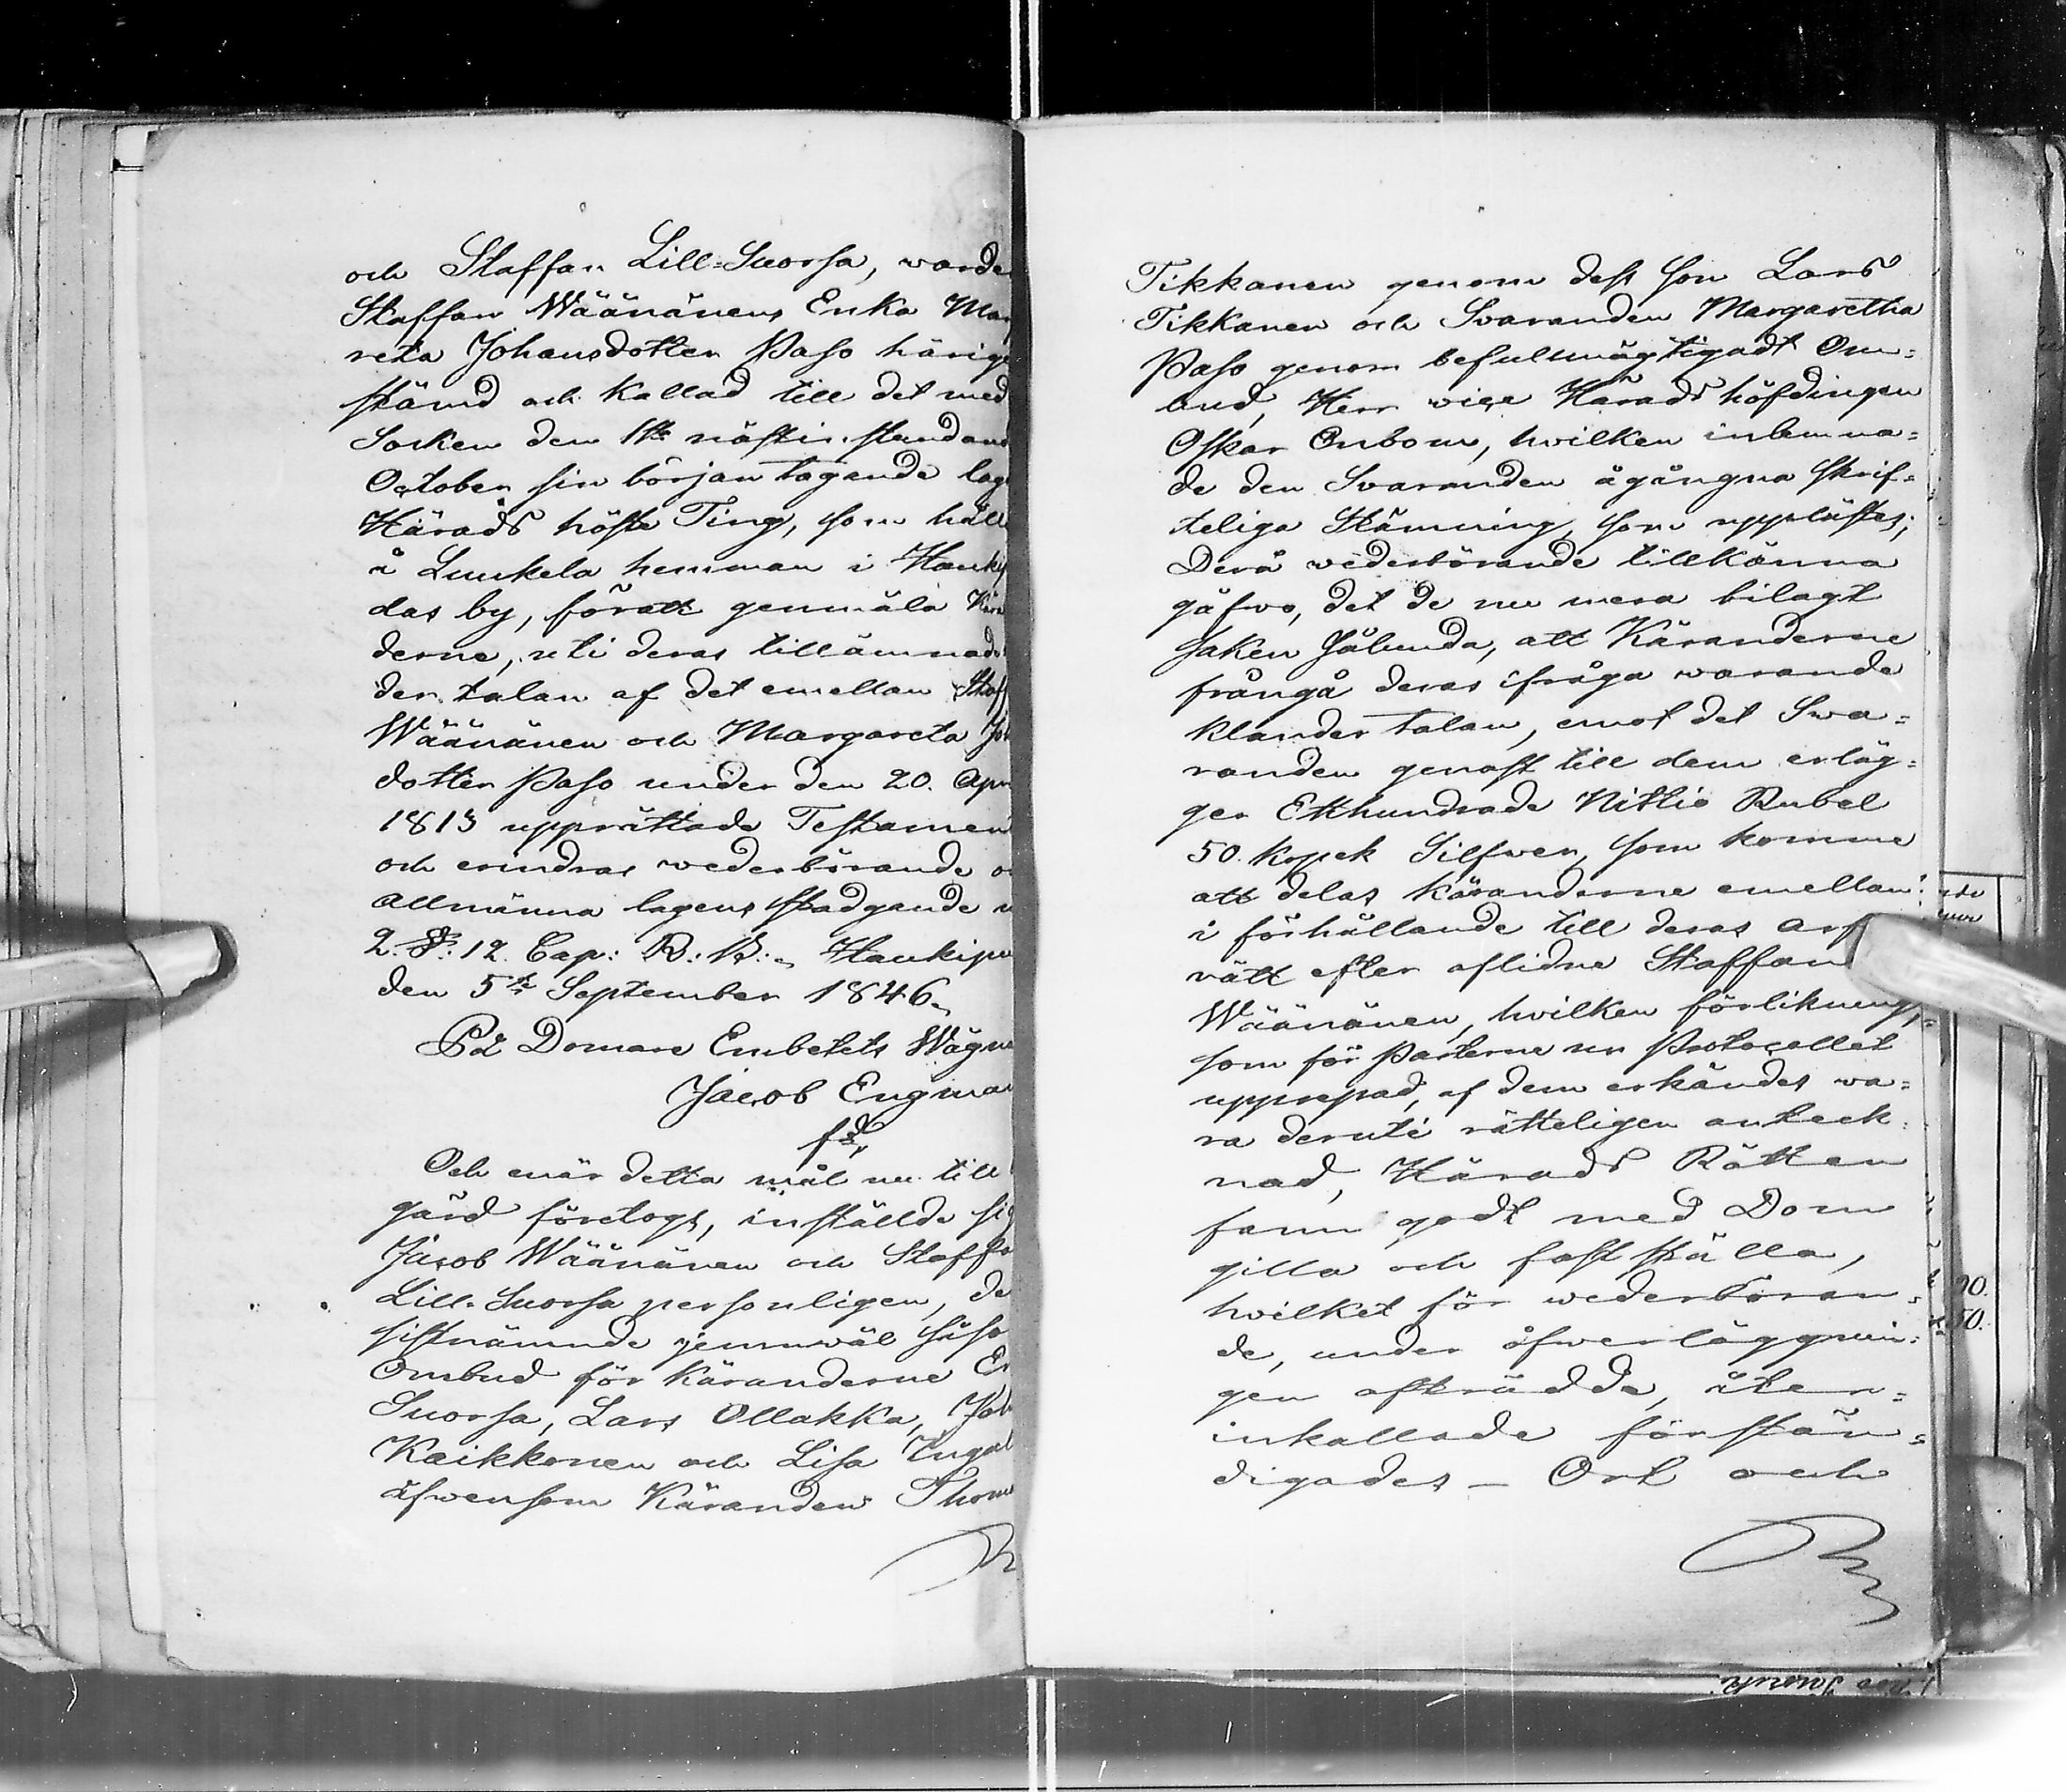 och Staffan Lill-Suorsa, warde
Staffan Wäänänens Enka Mar
reta Johansdotter Paso härige
stämd och kallad till det med
Socken den 1ste nästinstundand
October sin början tagande lag
Härads höste Ting, som håll
å Luukela hemman i Hauki
das by, föratt genmäla Kära
derne, uti deras tillämnad
der talan af det emellan Staff
Wäänänen och Margareta Jo
dotter Paso under den 20. Apr
1813 upprättade Testamen
och erindras wederbörande o
allmänna lagens stadgande u
2. §: 12. Cap: R: B:, Haukipu
den 5te September 1846,
På Domare Embetets Wägna
Jacob Engman
Och enär detta mål nu till
gärd företogs, inställde sig
Jacob Wäänänen och Staffa
Lill-Suorsa personligen, de
sistnämnde jemnwäl såso
Ombud för Käranderne Er
Suorsa, Lars Ollakka, Joh
Kaikkonen och Lisa Ingal
äfwensom Käranden Thom
Tikkanen genom dess son Lars
Tikkanen och Svaranden Margaretha
Paso genom befullmägtigadt Om=
bud, Herr vice Härads höfdingen
Oskar Enbom, hvilken inlemna=
de den Svaranden ågångna skrif=
teliga Stämning, som upplästes;
Derå wederbörande tillkänna
gåfvo, det de nu mera bilagt
saken sålunda, att Käranderne
frångå deras ifråga warande
klander talan, emot det Swa=
randen genast till dem erläg=
ger Etthundrade Nittio Rubel
50. Kopek Silfwer, som komme
att delas käranderne emellan
i förhållande till deras arf
rätt efter aflidne Staffan
Wäänänen, hvilken förlikning,
som för Parterne ur Protocollet
upprepad, af dem erkändes wa=
ra deruti rätteligen anteck=
nad, Härads Rätten
fann godt med Dom
gilla och fastställa,
hvilket för wederböran=
de, under öfwerläggnin=
gen afträdde, åter=
inkallade förstän=
digades – Ort och
90.
50.